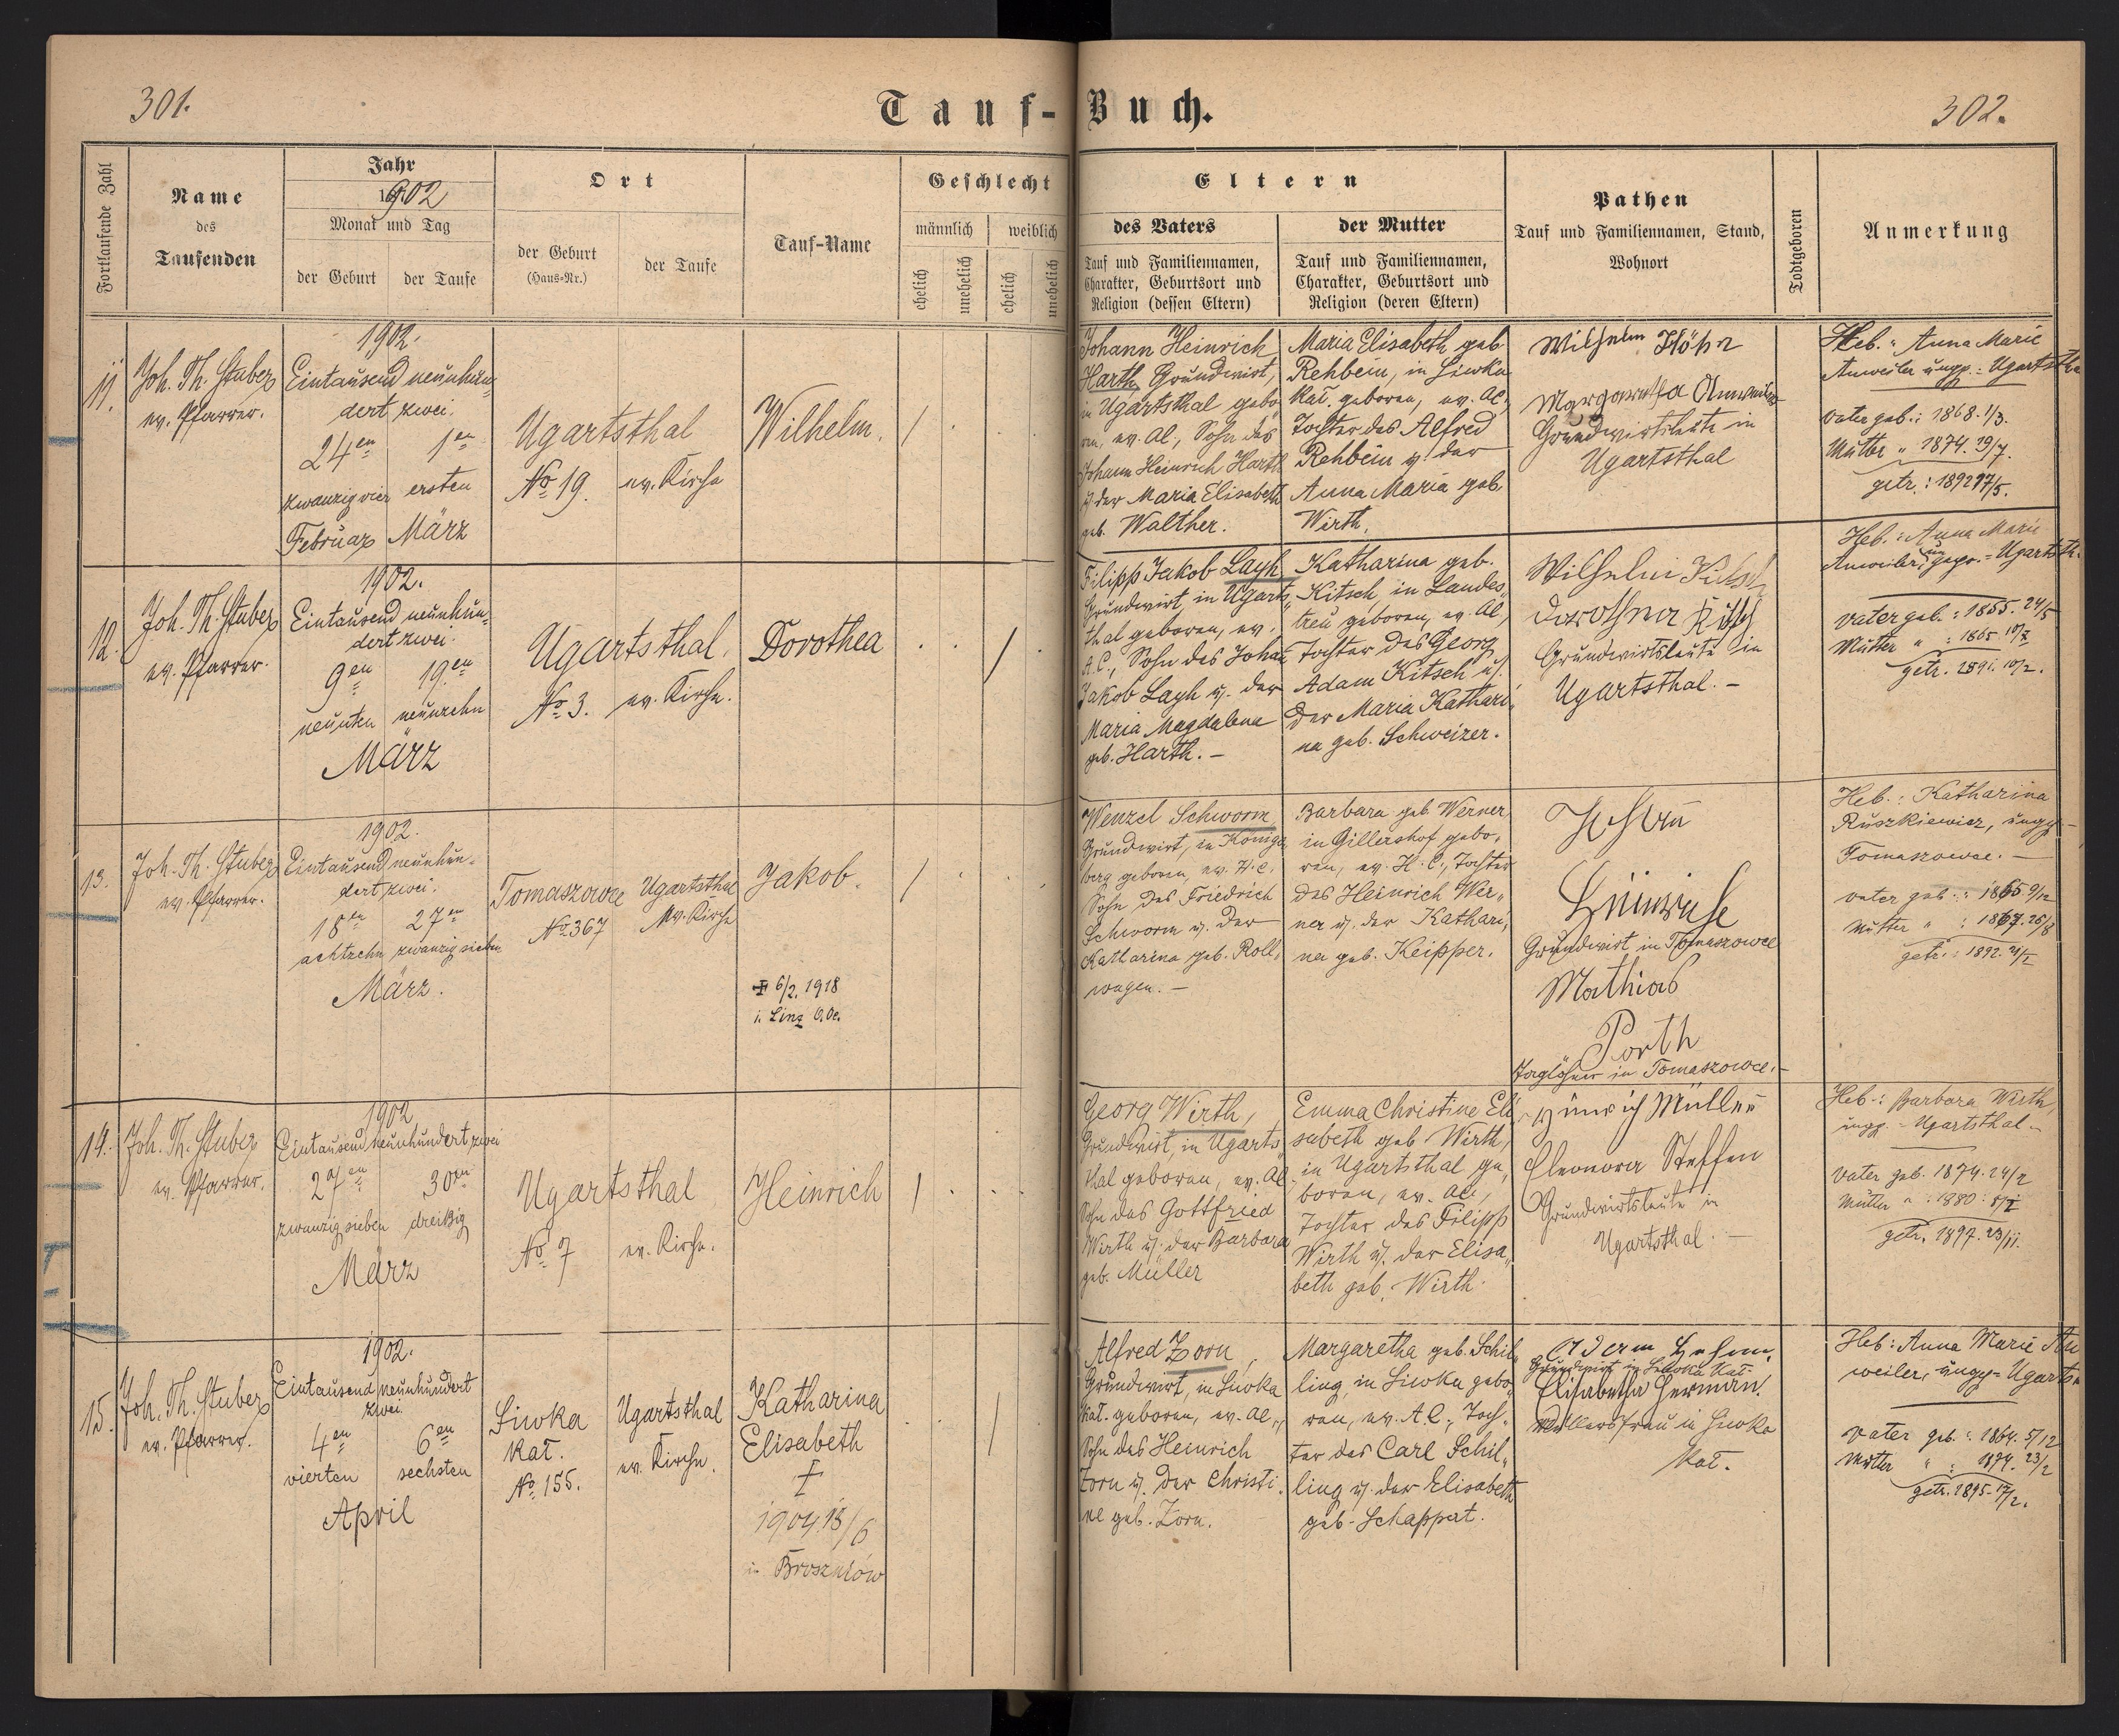 301.
Tauf-Buch.
302.
Fortlaufende Zahl
Name
des
Taufenden
Jahr
1902
Monat und Tag
der Geburt
der Taufe
Ort
der Geburt
(Haus-Nr.)
der Taufe
Tauf-Name
Geschlecht
männlich
weiblich
ehelich
unehelich
ehelich
unehelich
Eltern
des Vaters
Tauf und Familiennamen,
Charakter, Geburtsort und
Religion (dessen Eltern)
der Mutter
Tauf und Familiennamen,
Charakter, Geburtsort und
Religion (deren Eltern)
Pathen
Tauf und Familiennamen, Stand,
Wohnort
Todtgeboren
Anmerkung
11.
Joh. Th. Stuber
ev. Pfarrer.
1902.
Eintausend neunhun-
dert zwei.
24en
1en
zwanzigvier
ersten
Februar
März
Ugartsthal
No 19.
ev. Kirche
Wilhelm.
/
Johann Heinrich
Harth, Grundwirt,
in Ugartsthal gebo-
ren, ev. AC., Sohn des
Johann Heinrich Harth
u. der Maria Elisabeth
geb. Walther.
Maria Elisabeth geb.
Rehbein, in Siwka
Kał. geboren, ev. AC.,
Tochter des Alfred
Rehbein u. der
Anna Maria geb.
Wirth.
Wilhelm
Margaretha
Grundwirtsleute in
Ugartsthal
Heb.: Anna Marie
Anweiler ungp. = Ugartsthal
Vater geb.: 1868. 1/3.
Mutter " 1874. 19/7.
getr.: 1892 17/5.
12.
Joh. Th. Stuber
ev. Pfarrer.
1902.
Eintausend neunhun-
dert zwei.
9en
19en
neunten
neunzehn
März
Ugartsthal.
No 3.
ev. Kirche.
Dorothea
/
Filipp Jakob Layh
Grundwirt, in Ugarts-
thal geboren, ev.
A.C., Sohn des Johan
Jakob Layh u. der
Maria Magdalena
geb. Harth. –
Katharina geb.
Kitsch, in Landes-
treu geboren, ev. AC,
Tochter des Georg
Adam Kitsch u.
der Maria Kathari-
na geb. Schweizer.
Wilhelm Kitsch
Dorothea Kitsch
Grundwirtsleute in
Ugartsthal. –
Heb.: Anna Marie
Anweiler, = Ugartsth.
Vater geb.: 1855. 24/5
Mutter " : 1865 10/7
getr. 1891. 10/2.
13.
Joh. Th. Stuber
ev. Pfarrer.
1902.
Eintausend neunhun-
dert zwei.
18en
27en
achtzehn
zwanzig sieben
März.
Tomaszowce
No 367
Ugartsthal
ev. Kirche
Jakob.
6/2. 1918
i. Linz O.Oe.
/
Wenzel Schworm
Grundwirt, in Königs-
berg geboren, ev. H.C.
Sohn des Friedrich
Schworm u. der
Katharina geb. Roll-
wagen. –
Barbara geb. Werner
in Gillershof gebo-
ren, ev. H.C., Tochter
des Heinrich Wer-
ner u. der Kathari-
na geb. Keipper.
Grundwirt in Tomaszowce
Mathias
Porth
Taglöhner in Tomaszowce. –
Heb.: Katharina
Ruszkiewicz, ungp. –
Tomaszowce. –
Vater geb.: 1865 9/12
Mutter " : 1867. 26/8
getr.: 1892. 21/2
14.
Joh. Th. Stuber
ev. Pfarrer.
1902
Eintausend neunhundert zwei
27en
30en
zwanzig sieben
dreißig
März
Ugartsthal
No 7
ev. Kirche.
Heinrich
/
Georg Wirth,
Grundwirt, in Ugarts-
thal geboren, ev. AC
Sohn des Gottfried
Wirth u. der Barbara
geb. Müller
Emma Christine Eli-
sabeth geb. Wirth,
in Ugartsthal ge-
boren, ev. AC.,
Tochter des Filipp
Wirth u. der Elisa-
beth geb. Wirth.
Heinrich Müller
Eleonora Steffen
Grundwirtsleute in
Ugartsthal. –
Heb.: Barbara Wirth,
ungp. – Ugartsthal. –
Vater geb. 1874. 24/2
Mutter " : 1880:
getr. 1897. 23/11.
15.
Joh. Th. Stuber
ev. Pfarrer.
1902.
Eintausend neunhundert
zwei.
4en
6en
vierten
sechsten
April
Siwka
Kał.
No 155.
Ugartsthal
ev. Kirche.
Katharina
Elisabeth
†
1904 18/6
in Broszniów
/
Alfred Zorn,
Grundwirt, in Siwka
Kał. geboren, ev. AC.,
Sohn des Heinrich
Zorn u. der Christi-
ne geb. Zorn.
Margaretha geb. Schil-
ling, in Siwka gebo-
ren, ev. A.C., Toch-
ter des Carl Schil-
ling u. der Elisabeth
geb. Schappert.
Adam
Grundwirt in Siwka Kał.
Elisabetha Herman
Müllersfrau in Siwka
Kał.
Heb: Anna Marie An-
weiler, ungp = Ugartsth.
Vater geb.: 1864. 5/12
Mutter " : 1874. 23/2
getr. 1895. 17/2.